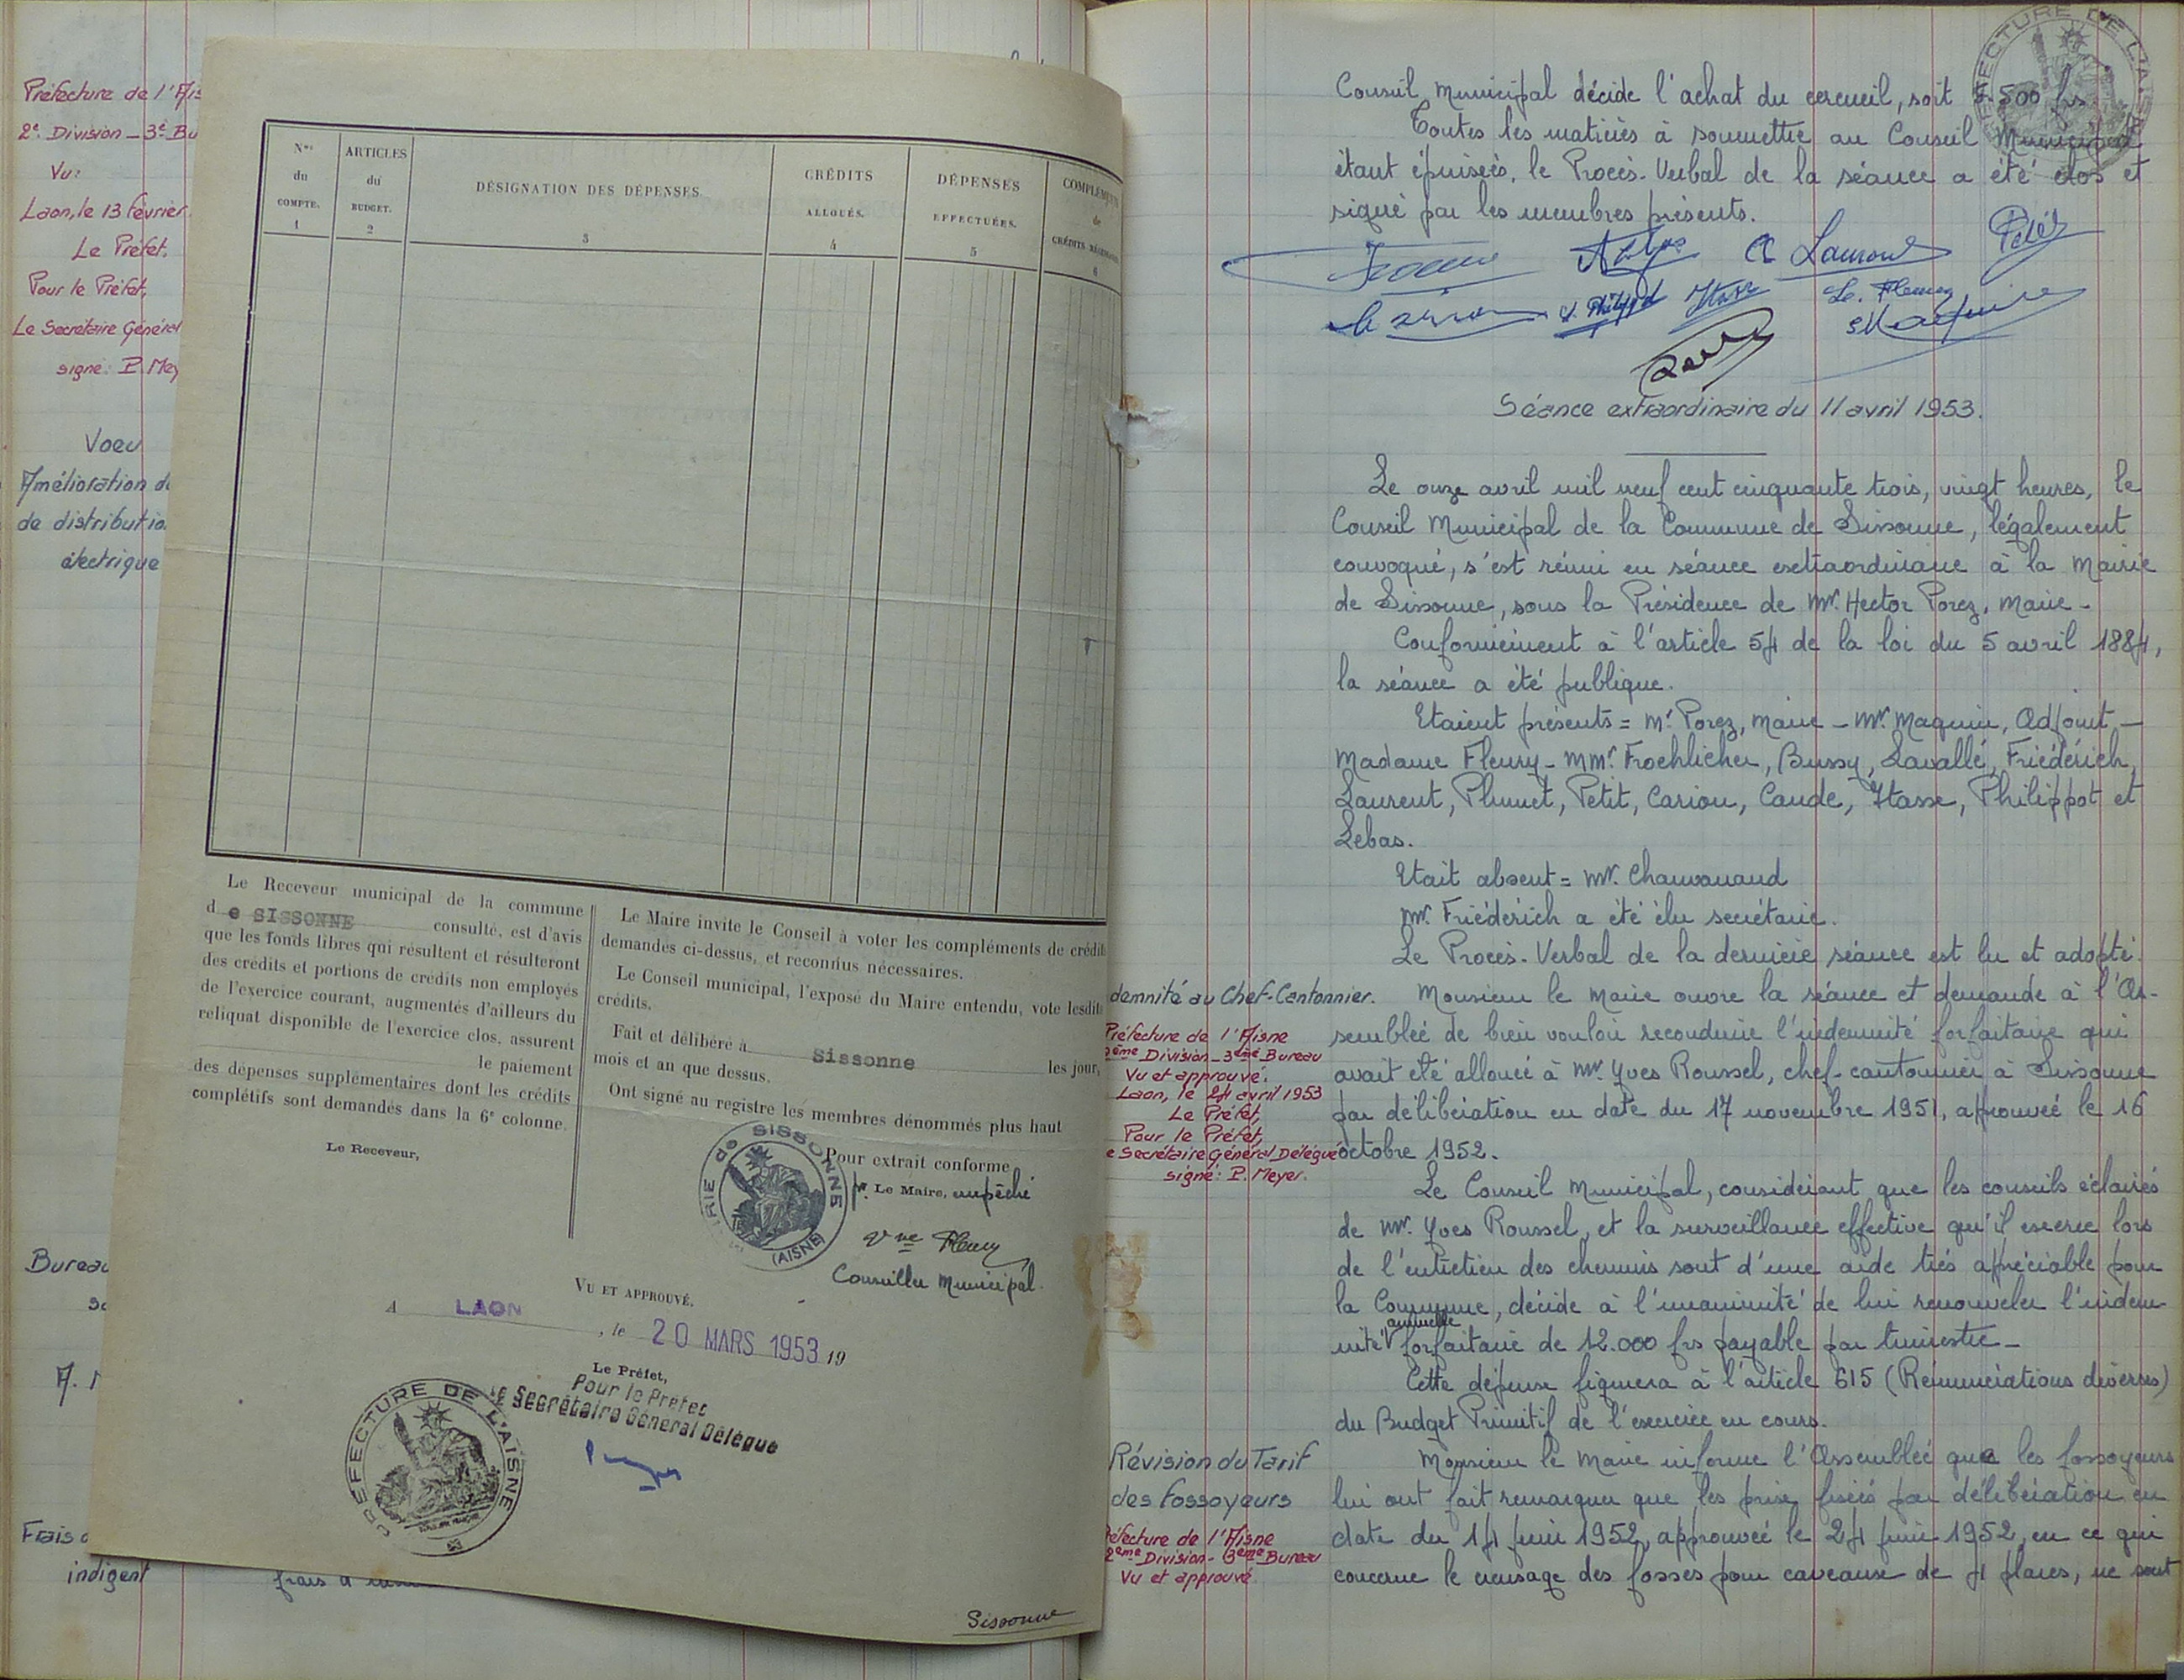 Préfecture de l'Ais
2e Division _ 3e Bu
Vu:
Laon, le 13 février
Le Préfet,
Pour le Préfet,
Le Secrétaire Général
signé: P. Mey
Voeu
Amélioration d
de distributio
électrique
Bureau
A.
Frais d
indigent
Nos du COMPTE. 1
ARTICLES du BUDGET. 2
DÉSIGNATION DES DÉPENSES. 3
CRÉDITS ALLOUÉS. 4
DÉPENSES EFFECTUÉES. 5
COMPLÉMENTS de CRÉDITS 6
Le Receveur municipal de la commune
d e SISSONNE consulté, est d'avis
que les fonds libres qui résultent et résulteront
des crédits et portions de crédits non employés
de l'exercice courant, augmentés d'ailleurs du
reliquat disponible de l'exercice clos, assurent
le paiement
des dépenses supplémentaires dont les crédits
complétifs sont demandés dans la 6e colonne.
Le Receveur,
Le Maire invite le Conseil à voter les compléments de crédits
demandés ci-dessus, et reconnus nécessaires.
Le Conseil municipal, l'exposé du Maire entendu, vote lesdits
crédits.
Fait et délibéré à Sissonne les jour,
mois et an que dessus.
Ont signé au registre les membres dénommés plus haut
Pour extrait conforme
pr. Le Maire, empêché
Vve Fleury
Conseiller Municipal.
MAIRIE de SISSONNE (AISNE)
VU ET APPROUVÉ.
A LAON, le 20 MARS 1953 19
Le Préfet,
Pour le Préfet
Le Secrétaire Général Délégué
PREFECTURE DE L'AISNE
Sissonne
PREFECTURE DE L'AISNE
Conseil Municipal décide l'achat du cercueil, soit 5.500 frs.
Toutes les matières à soumettre au Conseil Municipal
étant épuisées, le Procès-Verbal de la séance a été clos et
signé par les membres présents.
A Laurent
Petit
V. Philippot
Itasse
Le. Fleury
Maquin
Séance extraordinaire du 11 avril 1953.
Le onze avril mil neuf cent cinquante trois, vingt heures, le
Conseil Municipal de la Commune de Sissonne, légalement
convoqué, s'est réuni en séance extraordinaire à la Mairie
de Sissonne, sous la Présidence de Mr. Hector Porez, Maire -
Conformément à l'article 54 de la loi du 5 avril 1884,
la séance a été publique.
Etaient présents = Mr. Porez, Maire - Mr. Maquin, Adjoint -
Madame Fleury - MMrs Froehlicher, Bussy, Lavallé, Friédérich,
Laurent, Plumet, Petit, Cariou, Caude, Itasse, Philippot et
Lebas.
Etait absent = Mr. Chauvanaud
Mr. Friédérich a été élu secrétaire.
Le Procès-Verbal de la dernière séance est lu et adopté.
demnité au Chef-Cantonnier.
Monsieur le Maire ouvre la séance et demande à l'As-
semblée de bien vouloir reconduire l'indemnité forfaitaire qui
avait été allouée à Mr. Yves Roussel, chef-cantonnier à Sissonne
par délibération en date du 17 novembre 1951, aprouvée le 16
octobre 1952.
Préfecture de l'Aisne
2ème Division_3ème Bureau
Vu et approuvé.
Laon, le 24 avril 1953
Le Préfet,
Pour le Préfet,
e Secrétaire Général Délégué
signé: P. Meyer.
Le Conseil Municipal, considérant que les conseils éclairés
de Mr. Yves Roussel, et la surveillance effective qu'il exerce lors
de l'entretien des chemins sont d'une aide très appréciable pour
la Commune, décide à l'unanimité de lui renouveler l'indem-
nité annuelle forfaitaire de 12.000 frs payable par trimestre -
Cette dépense figurera à l'article 615 (Rémunérations diverses)
du Budget Primitif de l'exercice en cours.
Révision du Tarif
des Fossoyeurs
Monsieur le Maire informe l'Assemblée que les fossoyeurs
lui ont fait remarquer que les prix fixés par délibération en
date du 14 juin 1952, approuvée le 24 juin 1952, en ce qui
concerne le creusage des fosses pour caveaux de 4 places, ne sont
Préfecture de l'Aisne
2ème Division - 3ème Bureau
Vu et approuvé